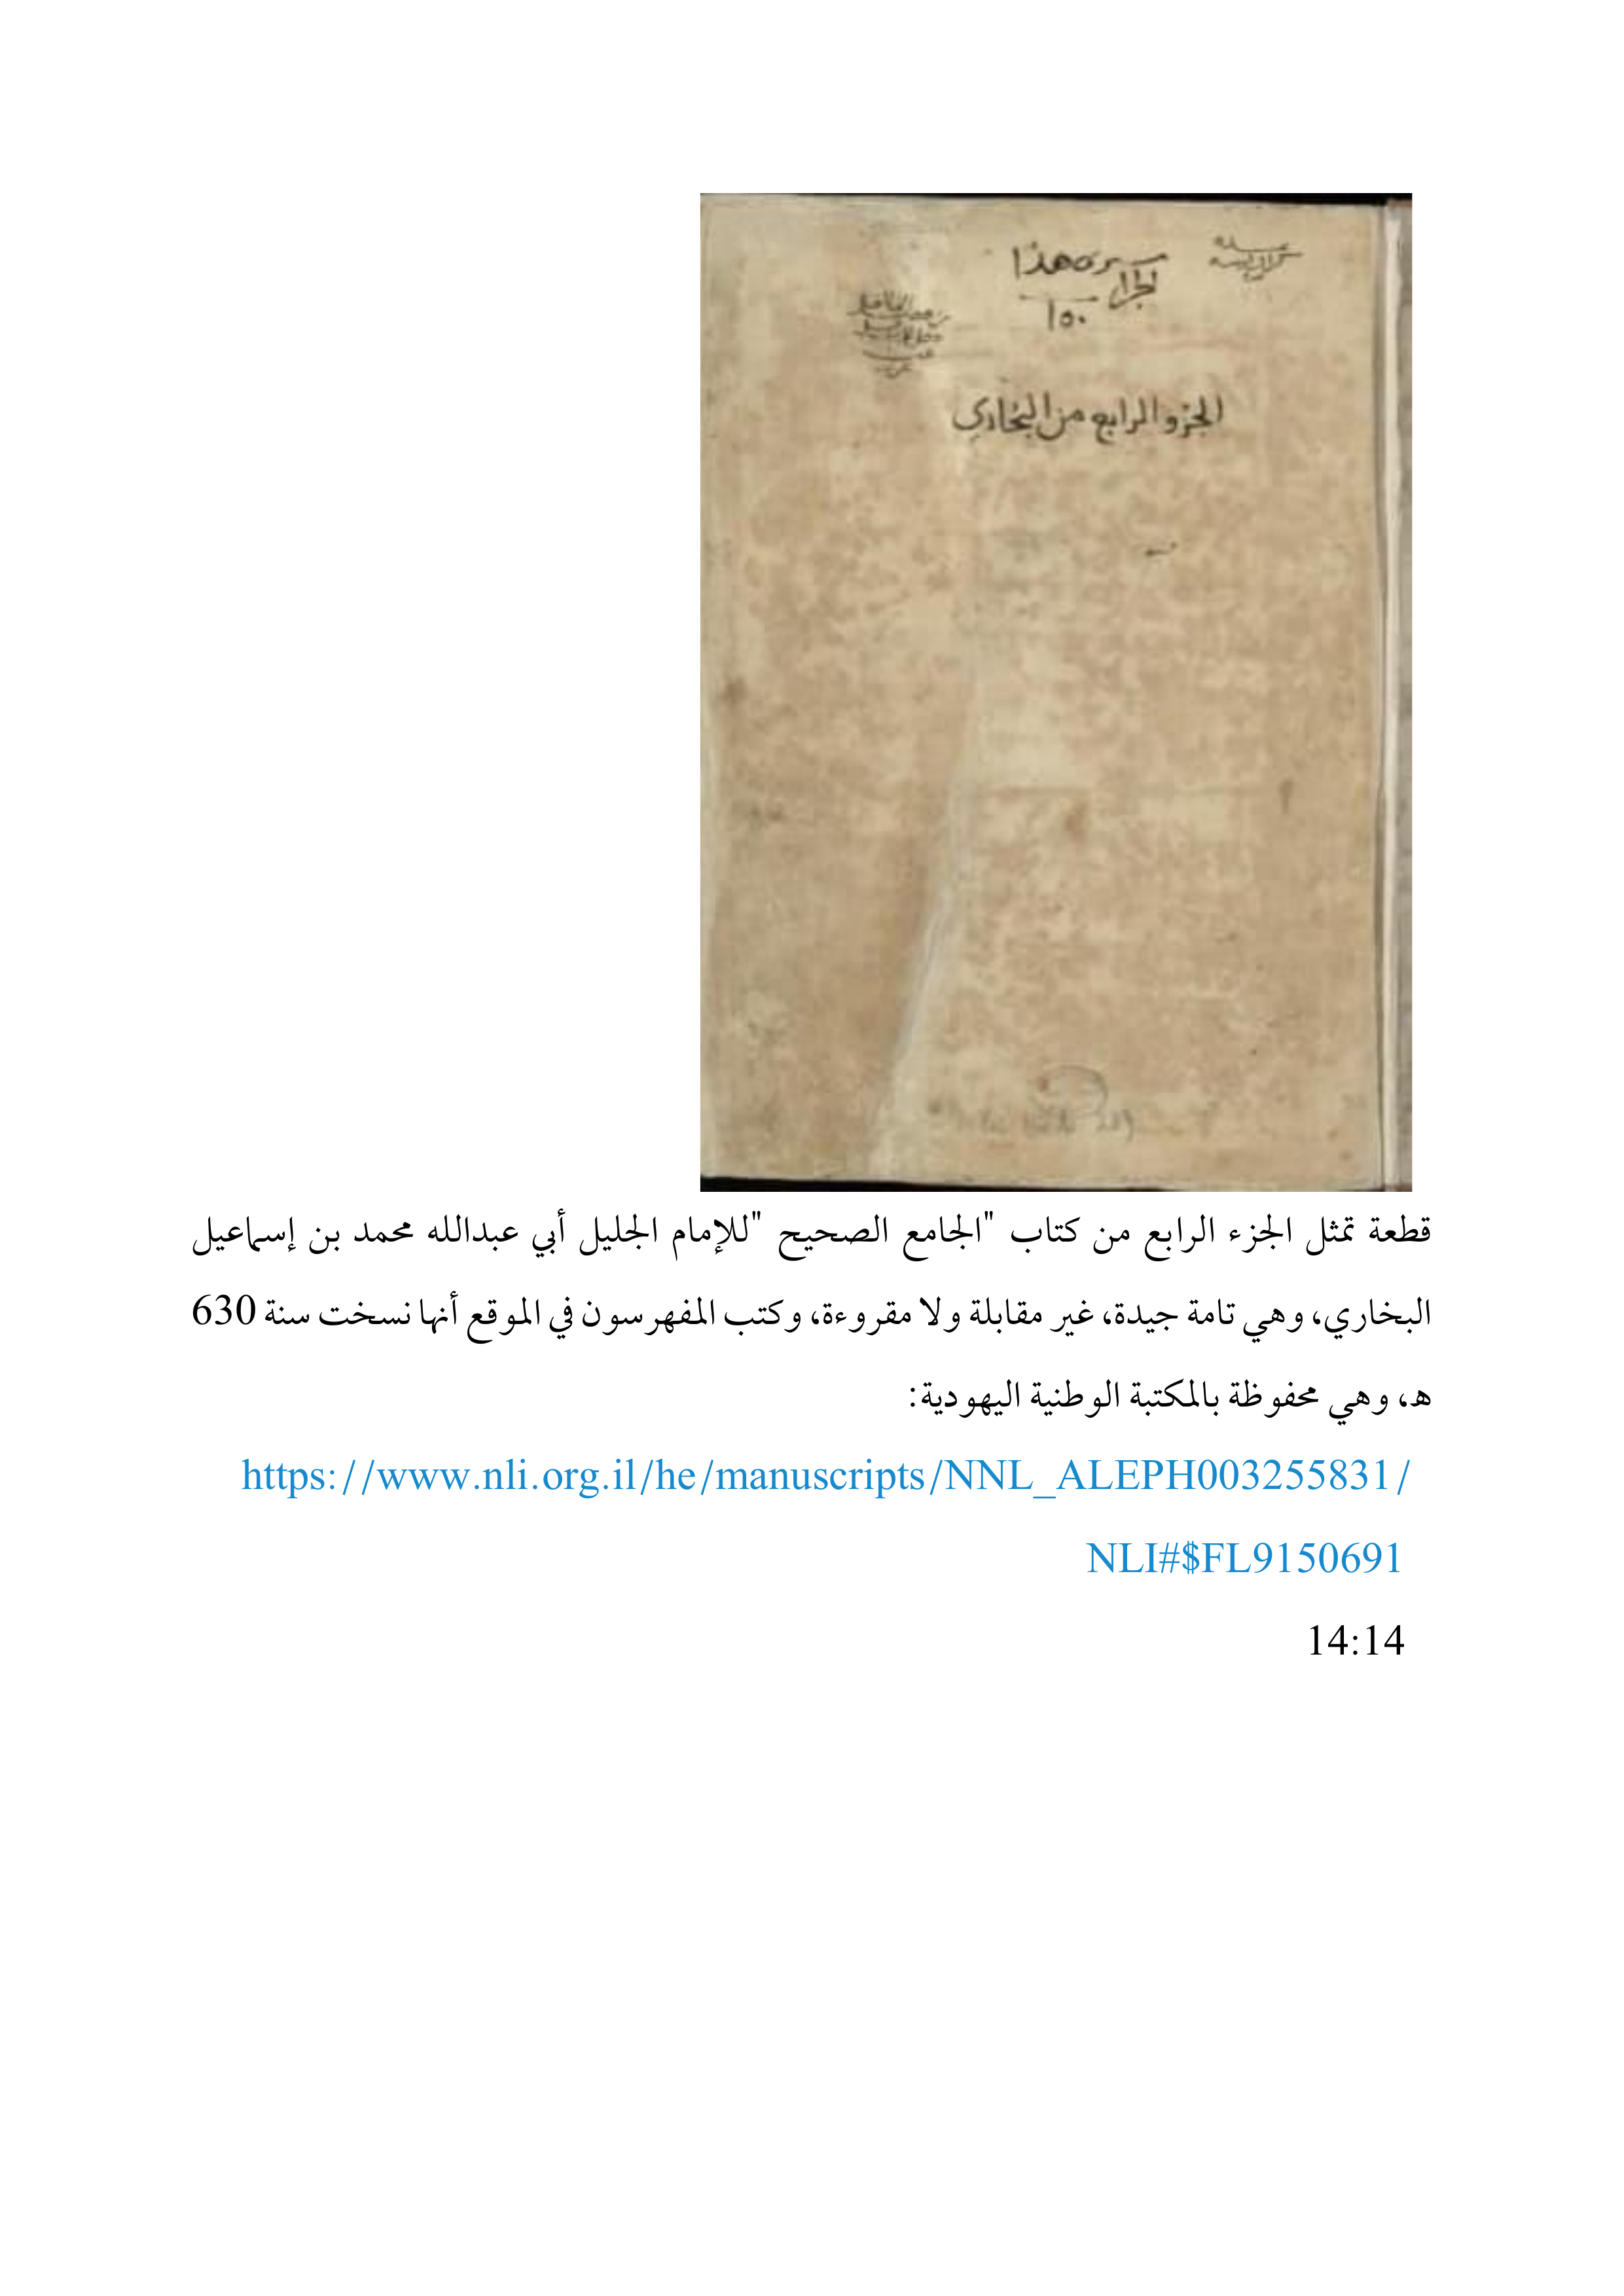 هذا
١٥٠
الجزو الرابع من البخاري
قطعة تمثل الجزء الرابع من كتاب "الجامع الصحيح "للإمام الجليل أبي عبدالله محمد بن إسماعيل
البخاري، وهي تامة جيدة، غير مقابلة ولا مقروءة، وكتب المفهرسون في الموقع أنها نسخت سنة 630
هـ، وهي محفوظة بالمكتبة الوطنية اليهودية:
https://www.nli.org.il/he/manuscripts/NNL_ALEPH003255831/
NLI#$FL9150691
14:14